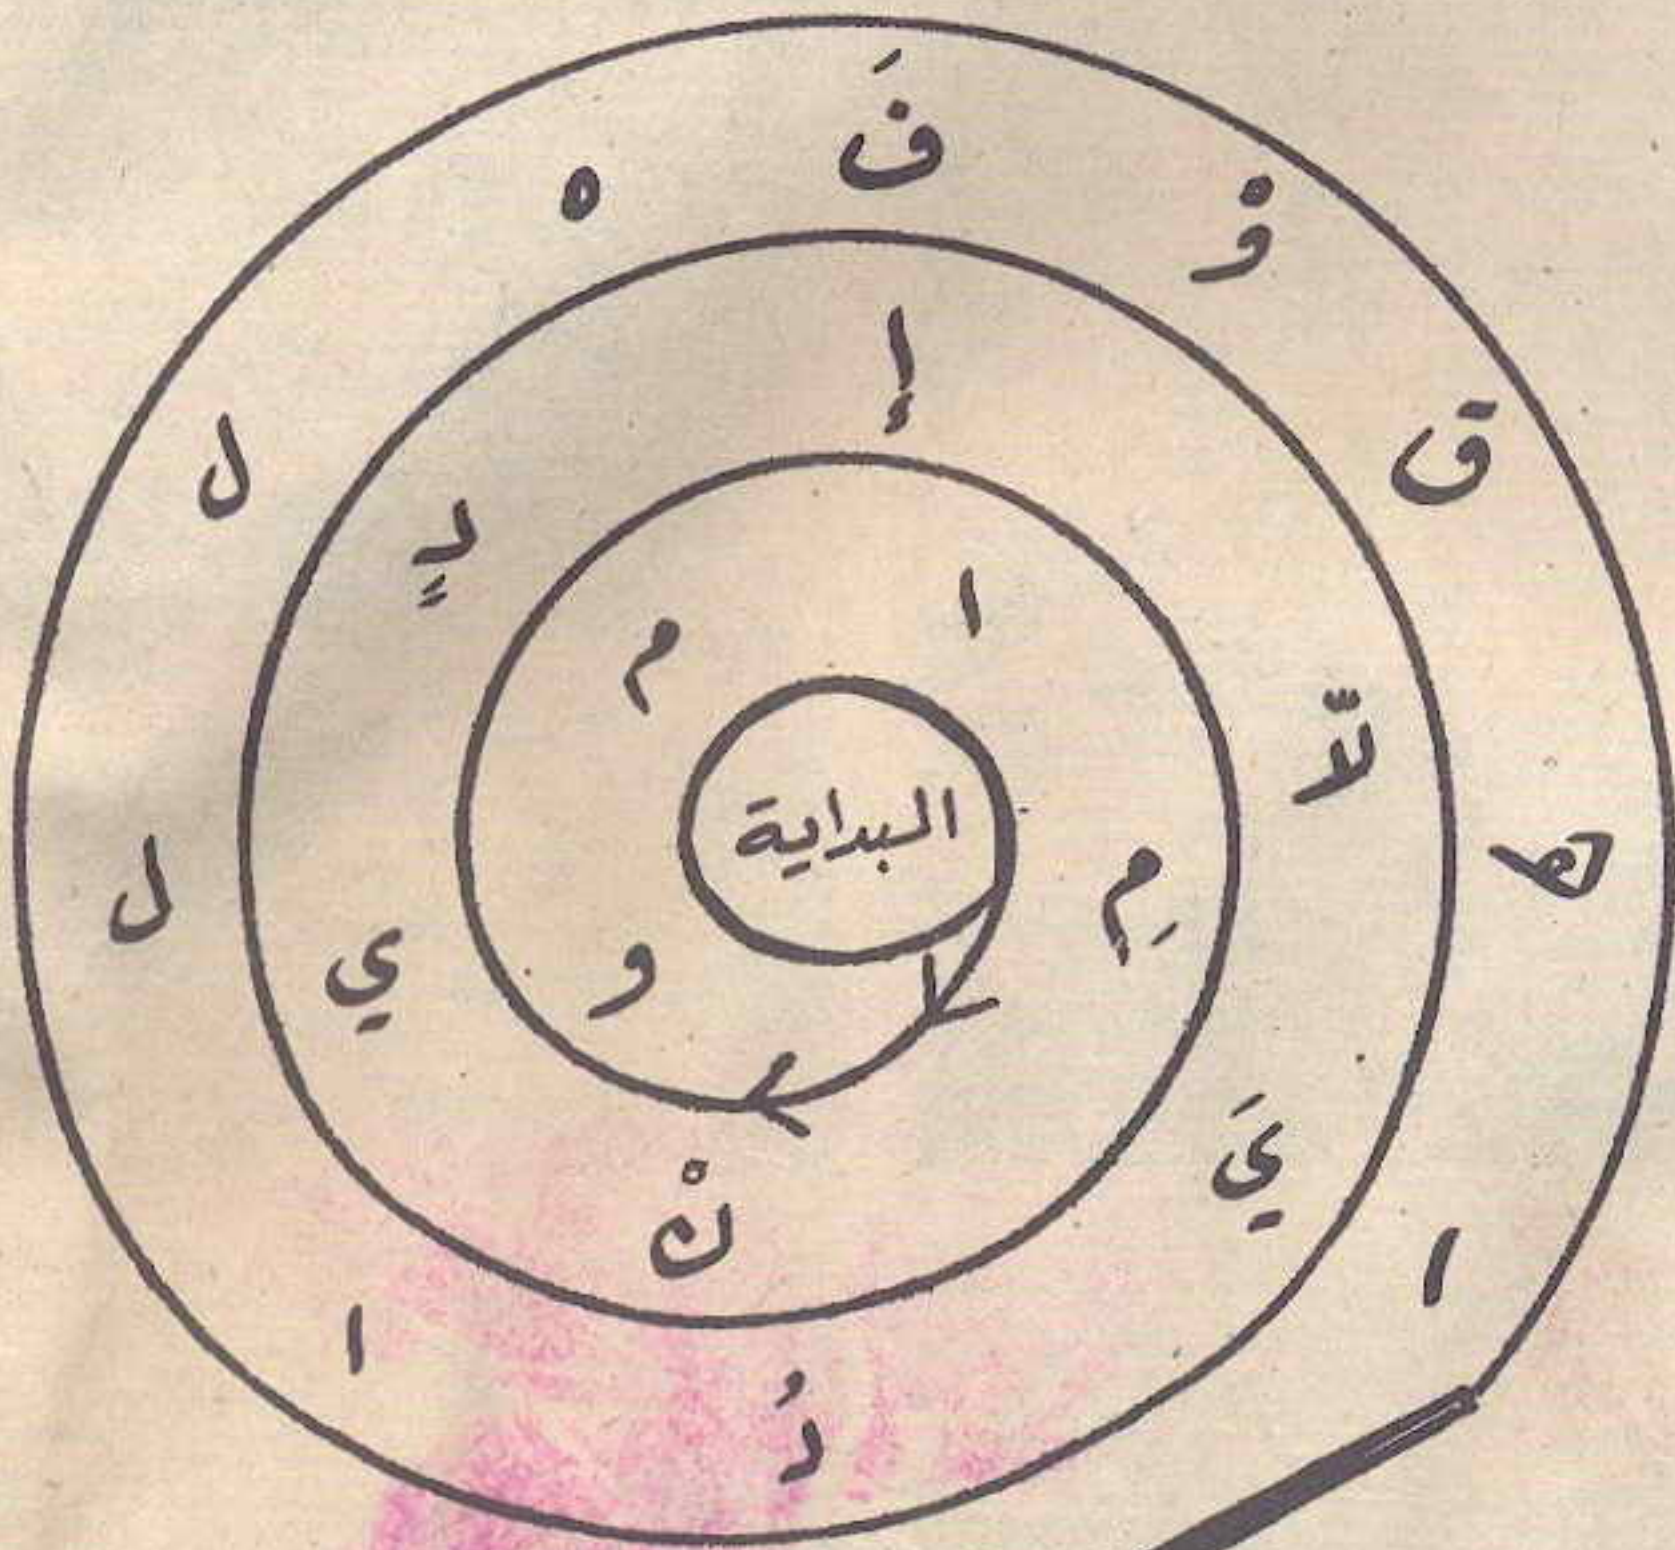 البداية
و م ا مِ نْ ي دٍ إ لاّ يَ دُ ا ل ل ه فَ وْ ق ه ا